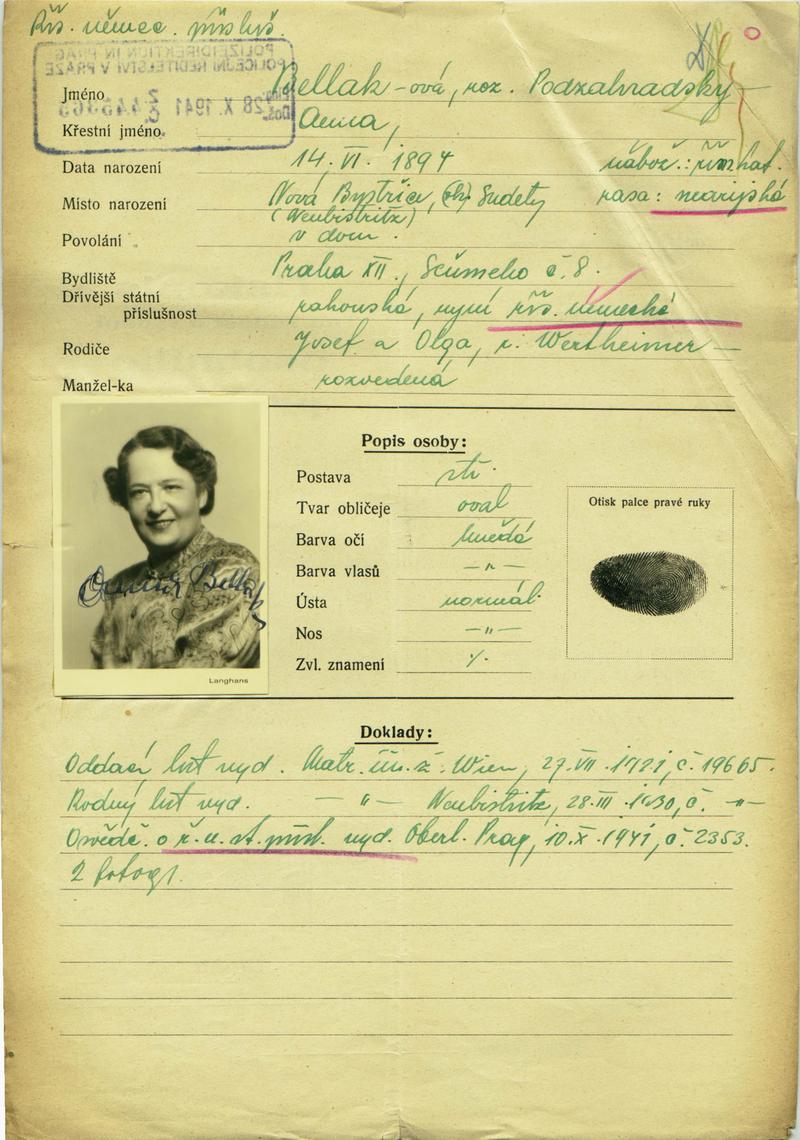 Říš. němec. přísluš.
POLIZEIDIREKTION IN PRAG
POLICEJNÍ ŘEDITELSTVÍ V PRAZE
28 X. 1941
Jméno Bellak-ová, roz. Podzahradsky
Křestní jméno Anna,
Data narození 14. VI. 1894 nábož.: řím kat.
Místo narození Nová Bystřice, Sudety rasa: nearijská
(Neubistritz)
Povolání v dom.
Bydliště Praha XII., č. 8.
Dřívější státní
příslušnost rakouská, nyní říš. německá
Rodiče Josef a Olga, r. Wertheimer
Manžel-ka rozvedená
Popis osoby:
Postava stř.
Tvar obličeje oval
Barva očí hnědá
Barva vlasů —„—
Ústa normál.
Nos —„—
Zvl. znamení ⁒
Otisk palce pravé ruky
Langhans
Doklady:
Oddací list vyd. Matr. Wien, 27. VII. 1921, č. 19665.
Rodný list vyd. —„— Neubistritz, 28. III. 1930, č. —„—
Osvědč. o ř. n. st. přísl. vyd. Oberl. Prag, 10. X. 1941, č. 2353.
2 fotogr.